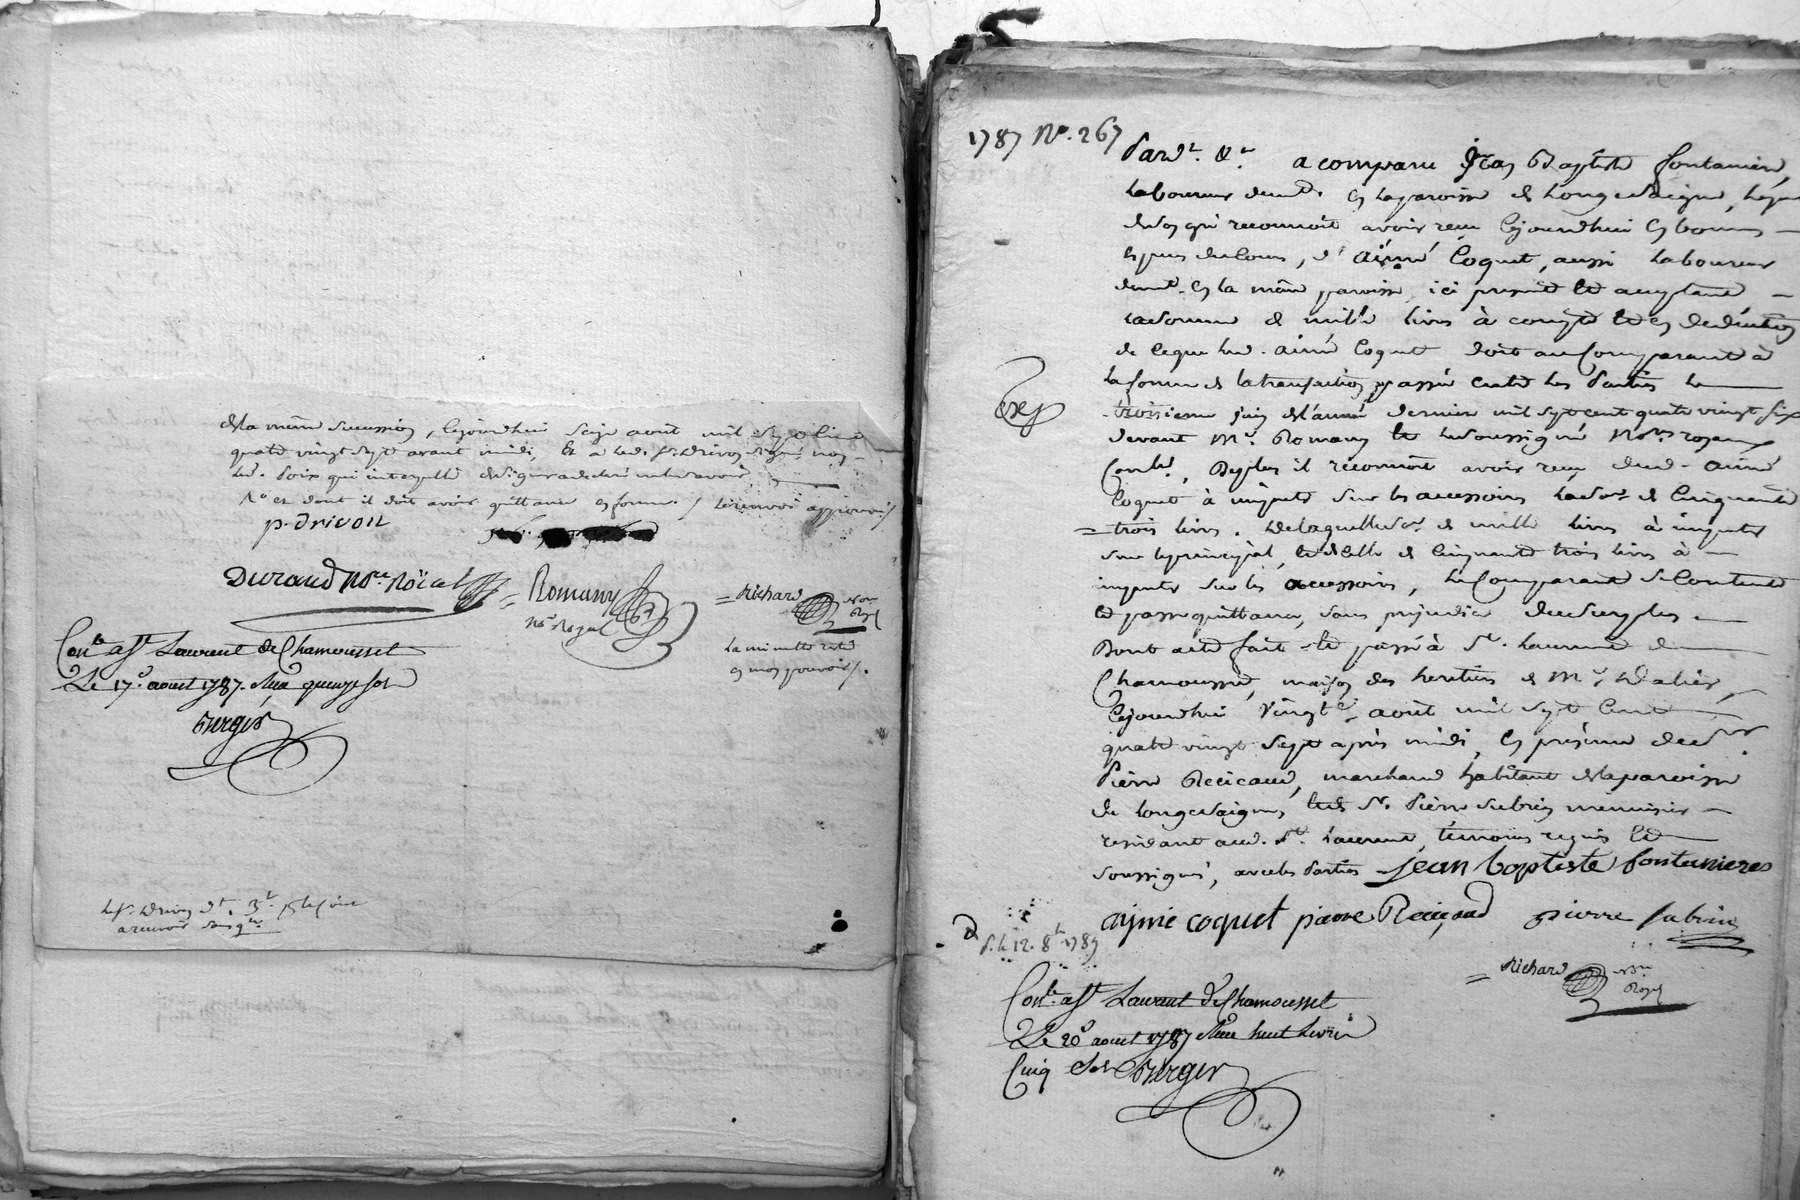 de la même succession, cejourdhui seize aout mil sept cent
quatre vingt sept avant midi, Et a led. Sr. Drivon signé, non
led. Poix qui interpellé de signer a declaré ne le savoir
et dont il doit avoir quittance en forme / le renvoi approuvé /
p. Drivon
Durand Nore. Roïal
Romany
Nre. Royal
= Richard Nore Royal
la minutte reste
en mon pouvoir /.
Conlé. a St Laurent de Chamousset
Le 17. aoust 1787. Reçu quinze sols
Berger
le Sr. Drivon dt. 3.
a recevoir
1787 No. 267
Pardt. &a. a comparu Jean Baptiste fontaniere,
laboureur demt. en la paroisse de Longessaigne, lequel
de son gré reconnoit avoir reçu cejourdhui en bonnes
espèces de cours, d'aimé Coquet, aussi laboureur
demt. en la même paroisse, ici présent et acceptant,
la somme de mille livres à compte et en déduction
de ce que led. aimé Coquet doit au Comparant à
la forme de la transaction passée entre les Parties le
troisieme juin de l'année derniere mil sept cent quatre vingt six
devant Me. Romany et le soussigné Nores. royaux
Conlé. De plus il reconnoit avoir reçu dud. aimé
Coquet à imputer sur les accessoires la So. de Cinquante
= trois livres. De laquelle So. de mille livres à imputer
sur le principal, et de celle de Cinquante trois livres à
imputer sur les accessoires, le Comparant se Contente
et passe quittance, sans préjudice du surplus
Dont acte fait et passé à St. Laurent de
Chamousset, maison des heritiers de Me.
Cejourdhui Vingt aoüt mil sept Cent
quatre vingt sept après midi, en présence de Sr
Pierre Recicaud, marchand habitant de la paroisse
de Longessaigne, et de Sr. Pierre subrin menuisier
residant aud. St. Laurent, témoins requis et
soussignés, avec les Parties Jean baptiste fontanieres
aymé coquet pierre Recicaud pierre subrin
d. le 12. 8bre 1787
= Richard Nore Royal
Conlé. a St Laurent de Chamousset
Le 20 aoust 1787 Reçu huit livres
Cinq sols Berger